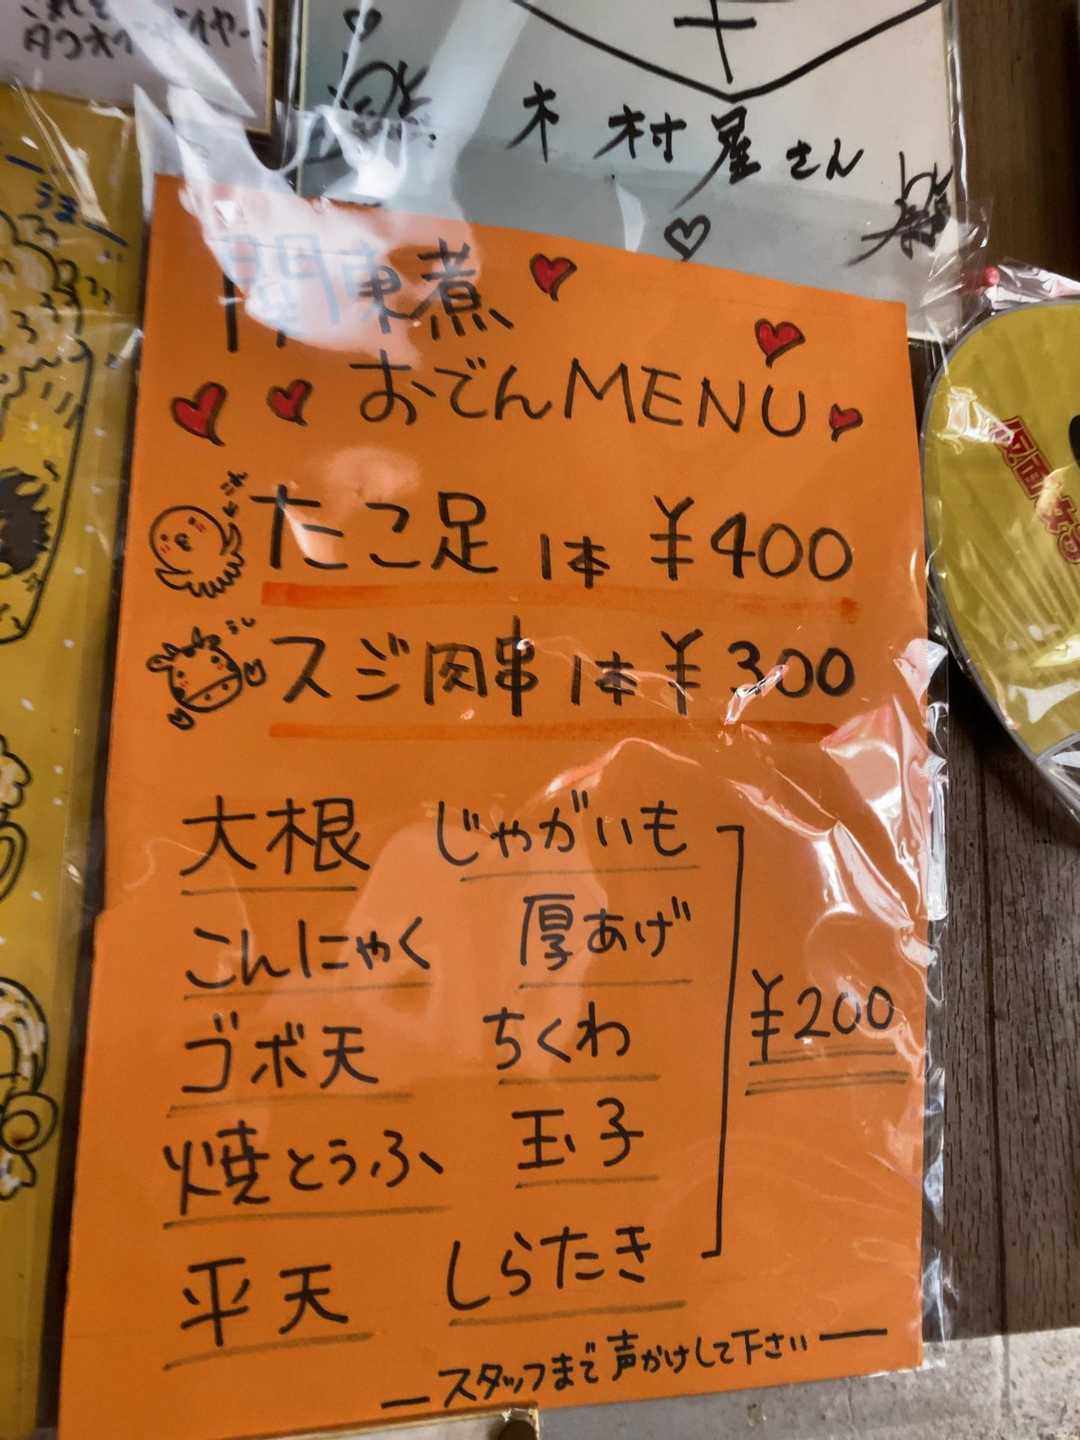 木村屋さん
関東煮
おでんMENU
たこ足 1本 ¥400
スジ肉串 1本 ¥300
大根 じゃがいも
こんにゃく 厚あげ
ゴボ天 ちくわ
¥200
焼とうふ 玉子
平天 しらたき
スタッフまで声かけして下さい